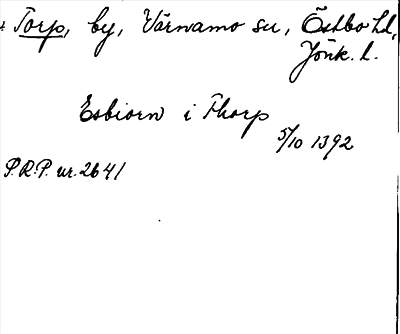 Torp, by, Värnamo sn, Östbo hd,
Jönk. l.
Esbiorn i Thorp
5/10 1392
P.R.P. nr. 2641